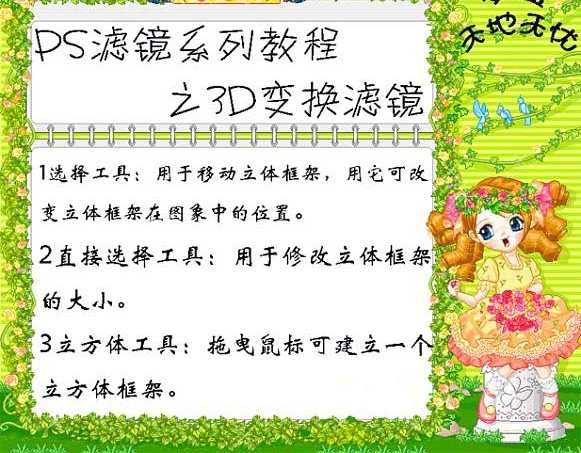 天地无忧
PS滤镜系列教程
之3D变换滤镜
1选择工具：用于移动立体框架，用它可改
变立体框架在图象中的位置。
2直接选择工具：用于修改立体框架
的大小。
3立方体工具：拖曳鼠标可建立一个
立方体框架。